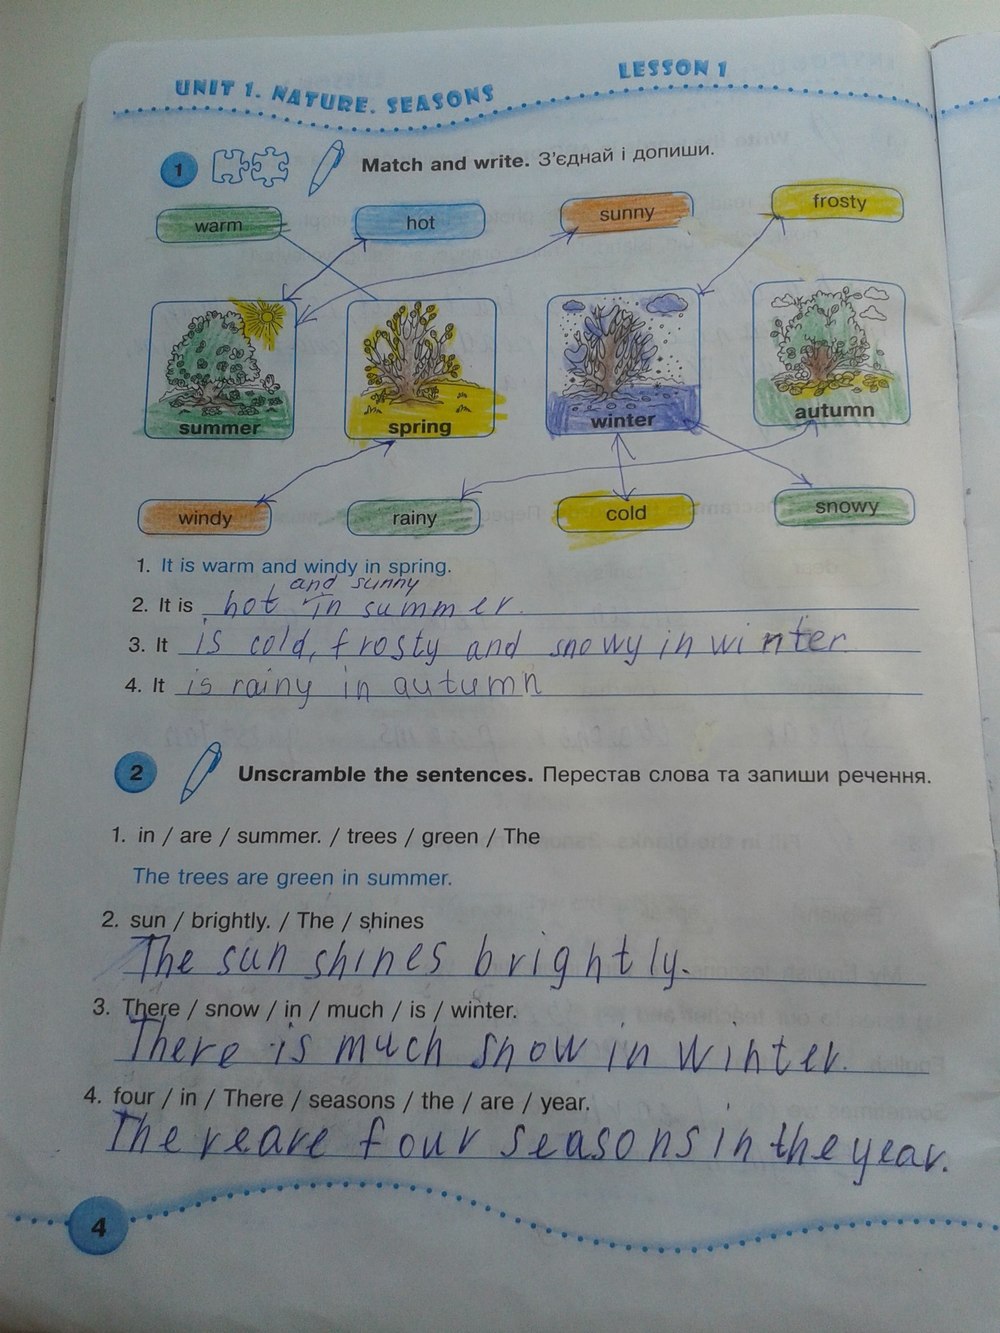 UNIT 1. NATURE. SEASONS
LESSON 1
1 Match and write. З'єднай і допиши.
warm hot sunny frosty
summer spring winter autumn
windy rainy cold snowy
1. It is warm and windy in spring.
and sunny
2. It is hot in summer.
3. It is cold, frosty and snowy in winter.
4. It is rainy in autumn
2 Unscramble the sentences. Перестав слова та запиши речення.
1. in / are / summer. / trees / green / The
The trees are green in summer.
2. sun / brightly. / The / shines
The sun shines brightly.
3. There / snow / in / much / is / winter.
There is much snow in winter.
4. four / in / There / seasons / the / are / year.
There are four seasons in the year.
4